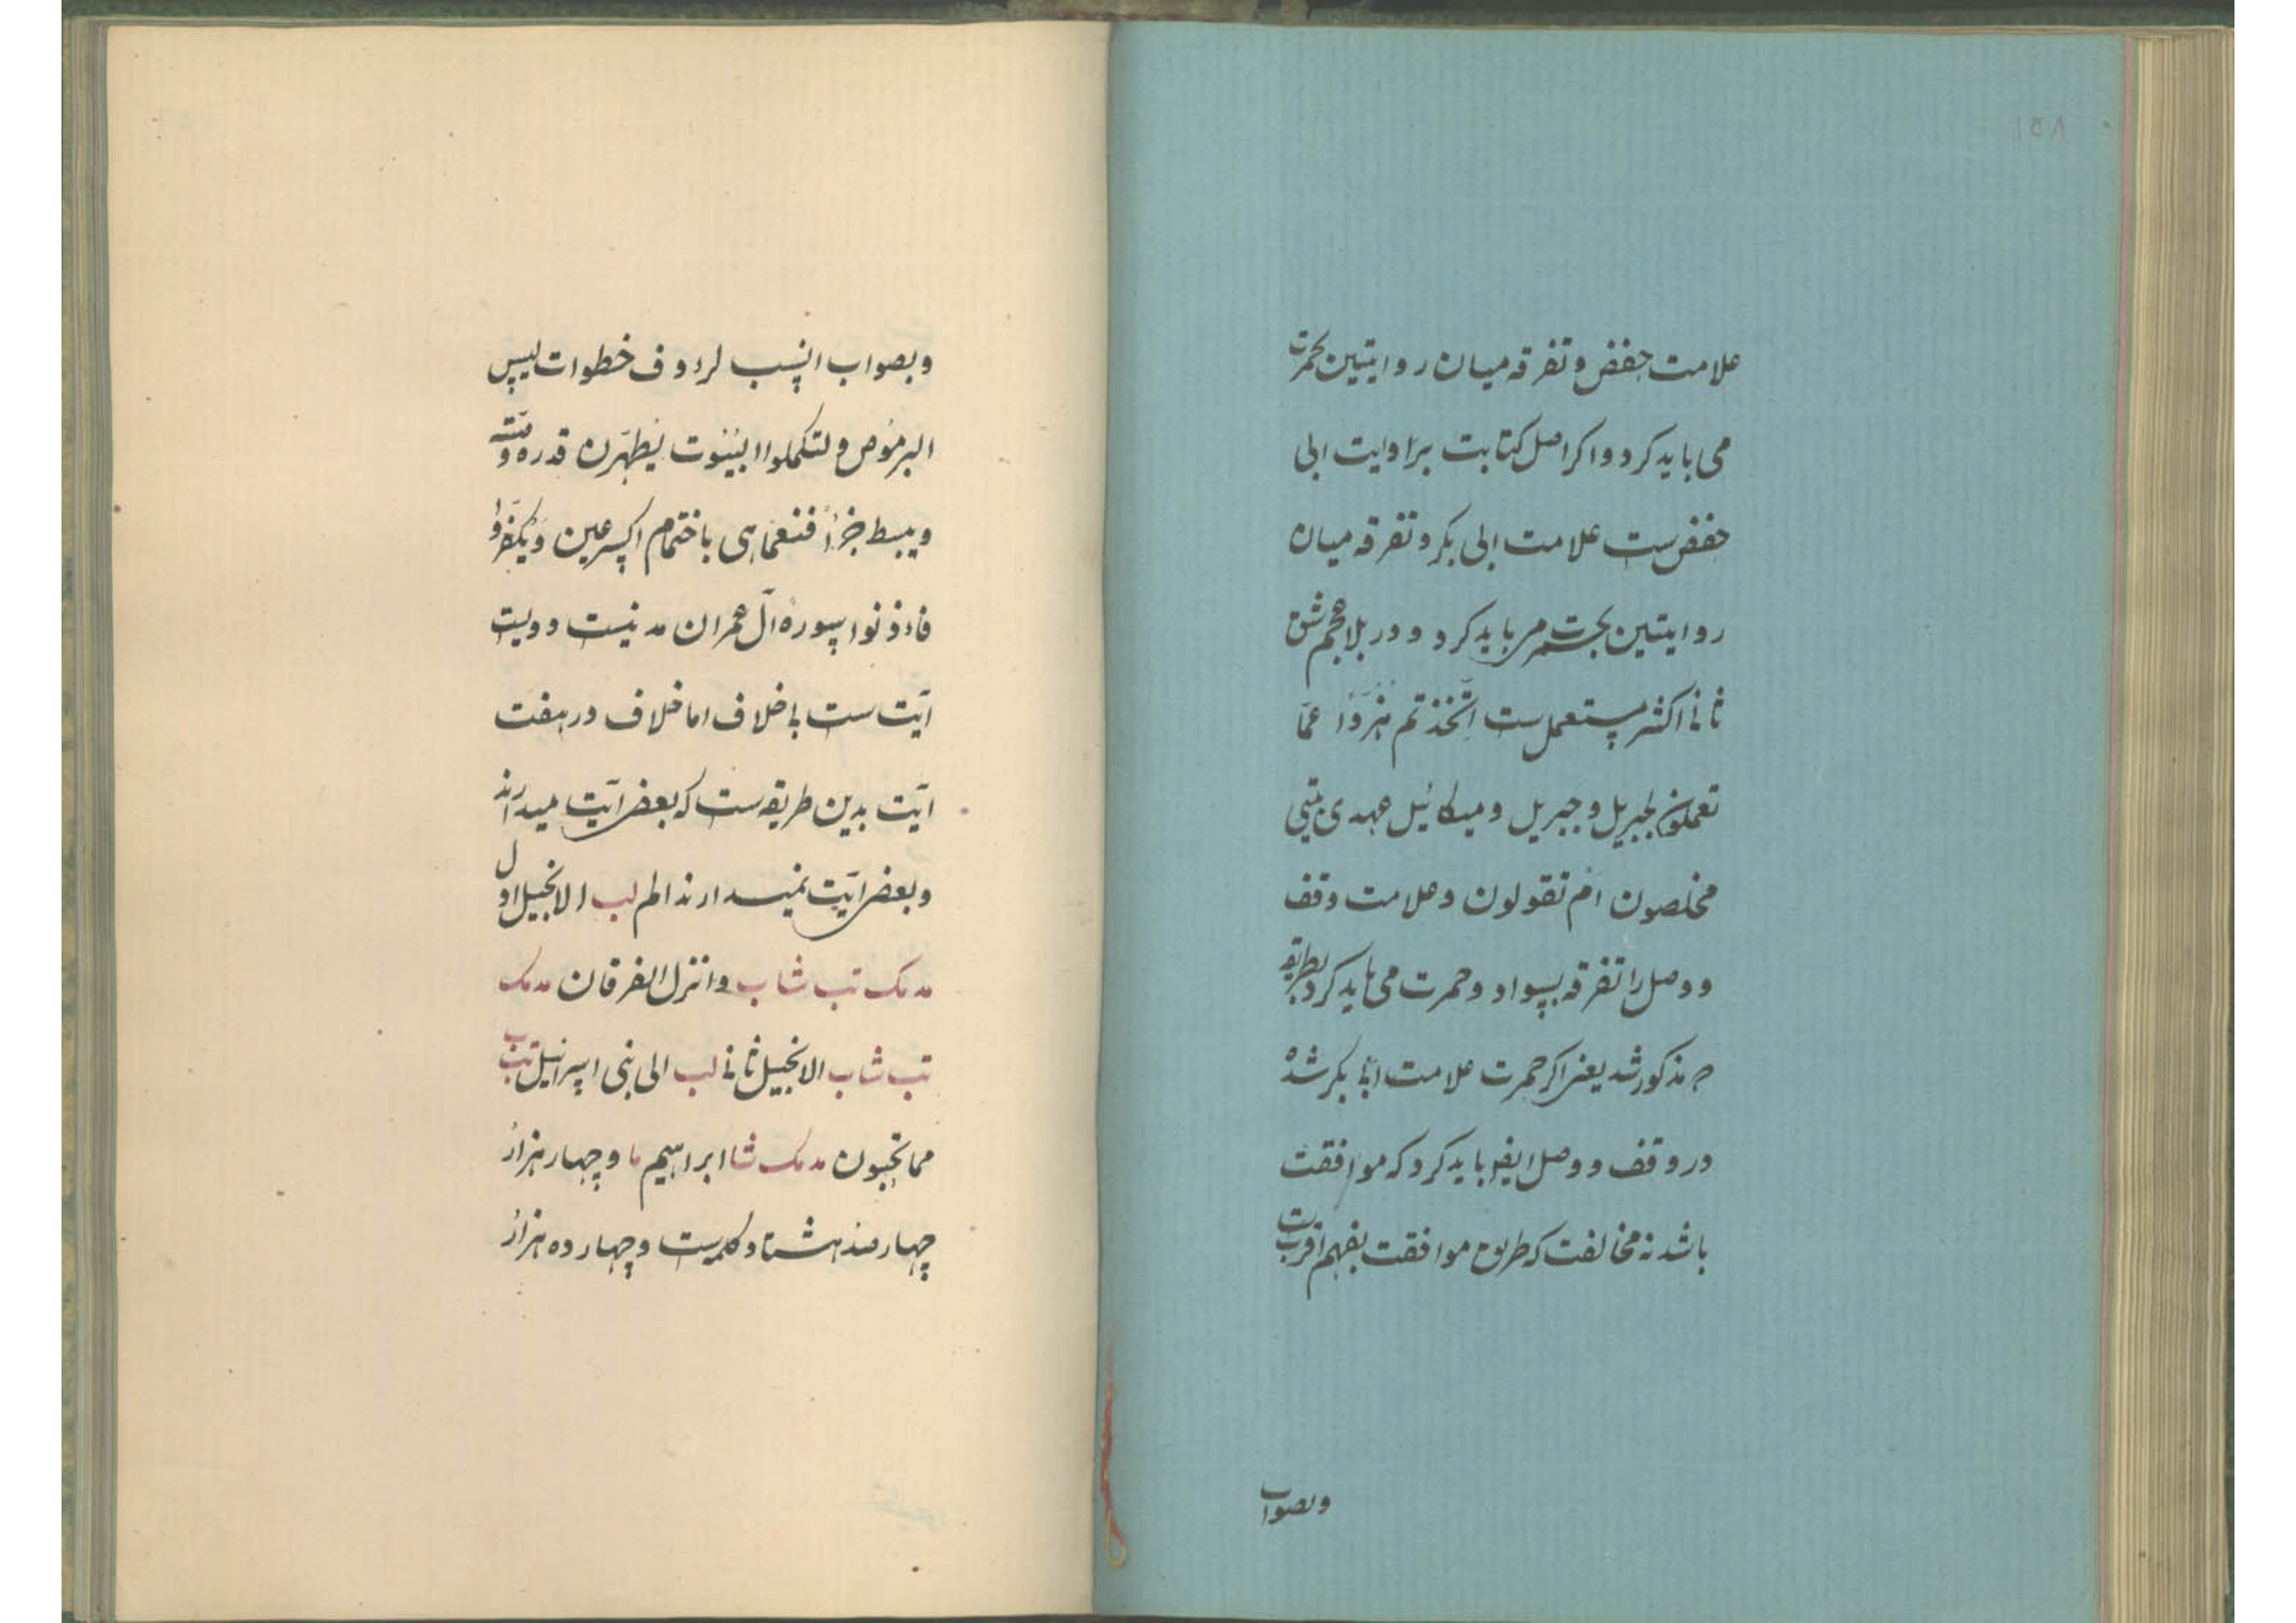 علامت حفض و تفرقه میان روایتین بحمرت
می باید کرد و اکر اصل کتابت براوایت ابی
حفض ست علامت ابی بکر و تفرقه میان
روایتین بحمرت می باید کرد و در بلاد عجم شق
ثانی اکثر مستعمل ست اتّخذتم هُزُوًا عمّا
تعملون لجبریل و جبریل و میکائیل عهدی بیتی
مخلصون ام تقولون و علامت وقف
و وصل را تفرقه بسواد و حمرت می باید کرد بطریقه
مذکور شد یعنی اکر حمرت علامت ابی بکر شده
در وقف و وصل ایضا باید کرد که موافقت
باشد نه مخالفت که طریق موافقت بفهم اقربت
وبصواب
وبصواب انسب لرءوف خطوات لیس
البر مُوَصٍ ولتکملوا البیُوت یطّهّرن قدره وصیّته
ویبسط جزءًا فنعمّا هی باختمام اکسر عین وَیُکفّر وا
فاءذنوا سوره آل عمران مدنیست و دویست
آیت ست باخلاف اما خلاف در هفت
آیت بدین طریقه ست که بعضی آیت میدارند
و بعضی آیت نمیدارند الم لب الانجیل اول
مدمک تب شاب وانزل الفرقان مدمک
تب شاب الانجیل ثانی لب الی بنی اسرائیل تب ب
مما تحبون مدمک شا ابراهیم ما و چهار هزار
چهارصد هشتاد کلمه ست و چهارده هزار